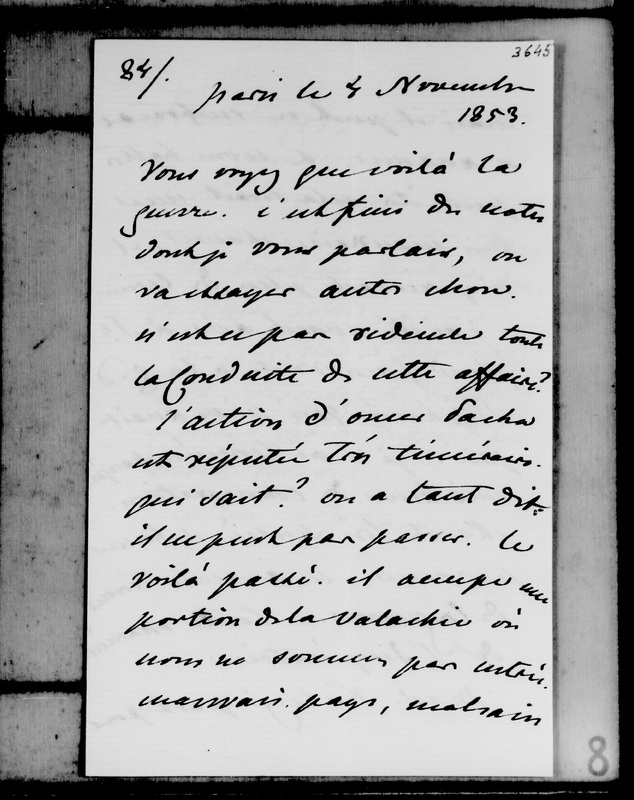 3645
84/.
paris le 4 Novembre
1853.
Vous voyez que voilà la
guerre. c'est fini des notes
dont je vous parlais, on
va essayer autre chose.
n'est ce pas ridicule toute
la Conduite de cette affaire?
l'action d'omer Pacha
est réputée très téméraire.
qui sait? on a tant dit:
il ne peut pas passer. le
voilà passé. il occupe une
portion de la Valachie où
nous ne sommes pas entrés.
mauvais pays, malsain
8